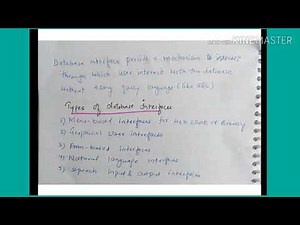 KINEMASTER
Database interface provide a mechanism to
through which user interact with the database
without using query language (like SQL)
Types of database interfaces
1) Menu-based interfaces for web
2) Graphical User interfaces
3) Form-based interfaces
4) Natural language interfaces
5) Speech input & output interfaces